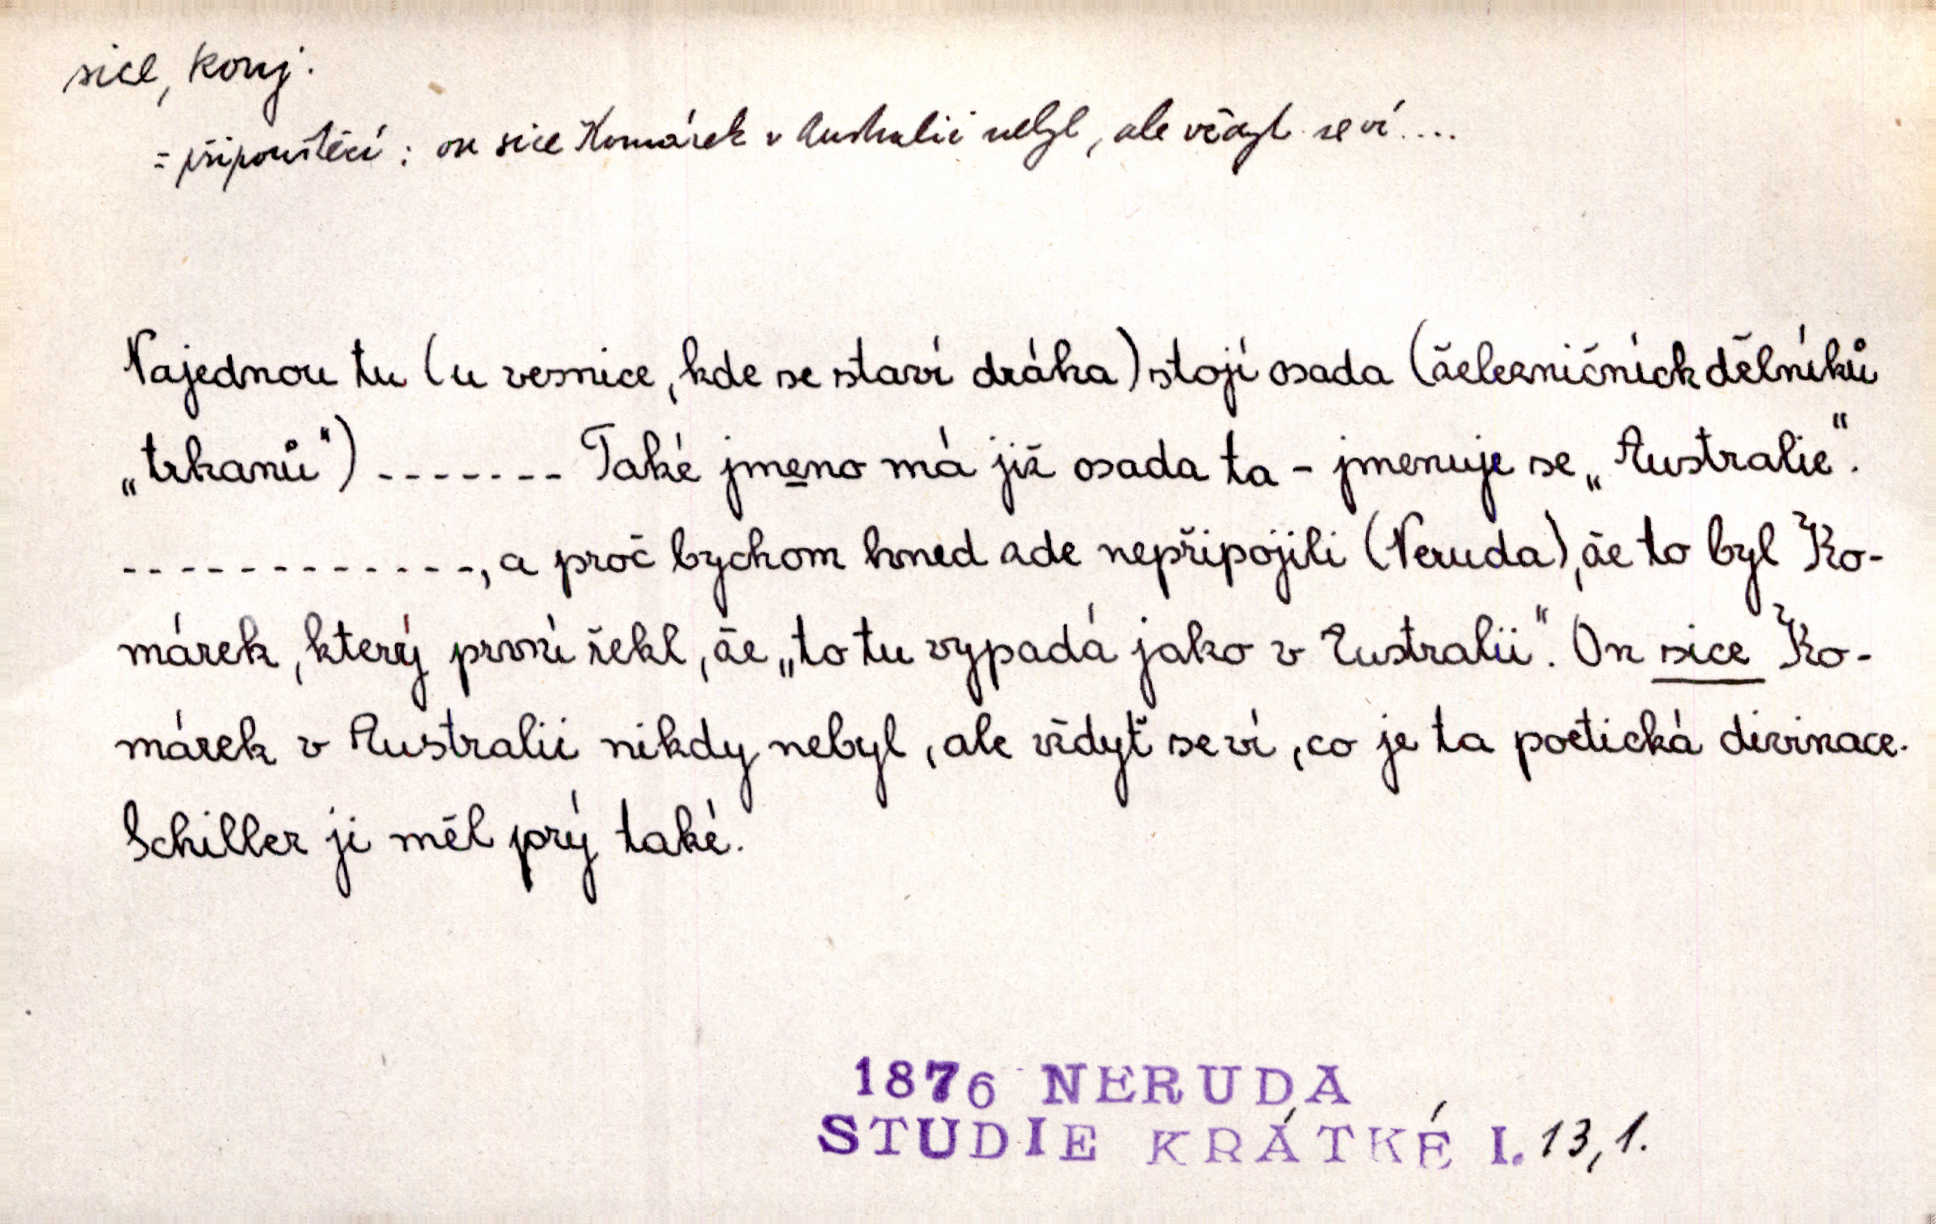 sice, konj.
= připouštěcí : on sice Komárek v Australii nebyl, ale vždyť se ví....
Najednou tu (u vesnice, kde se staví dráha) stojí osada (železničních dělníků
„trhanů") ------- Také jmeno má již osada ta – jmenuje se „Australie".
-------------, a proč bychom hned zde nepřipojili (Neruda), že to byl Ko-
márek, který první řekl, že „to tu vypadá jako v Eustralii". On sice Ko-
márek v Australii nikdy nebyl, ale vždyť se ví, co je ta poetická divinace.
Schiller ji měl prý také.
1876 NERUDA
STUDIE KRÁTKÉ I. 13,1.